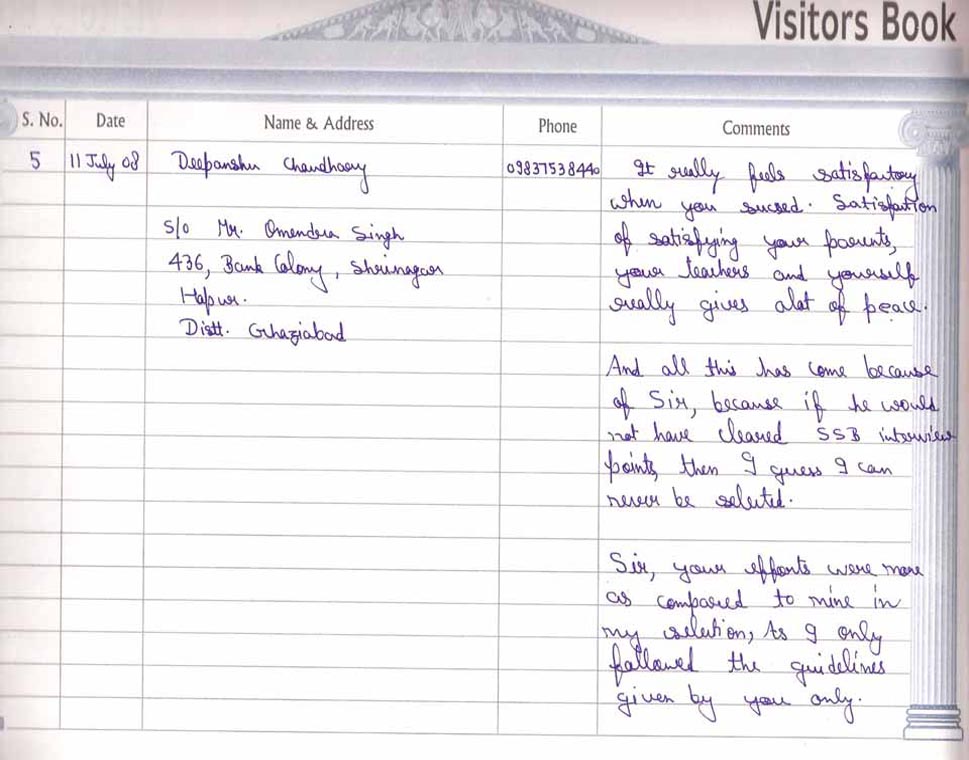 Visitors Book
S. No. Date Name & Address Phone Comments
5 11 July 08 Deepanshu Chaudhary 09837538440 It really feels satisfactory
when you sucsed. Satisfaction
S/o Mr. Omendra Singh of satisfying your parents,
436, Bank Colony, Shrinagar your teachers and yourself
Hapur. really gives alot of peace.
Distt. Ghaziabad
And all this has come because
of Sir, because if he would
not have cleared SSB interview
points, then I guess I can
never be selected.
Sir, your efforts were more
as compared to mine in
my selection, As I only
followed the guidelines
given by you only.